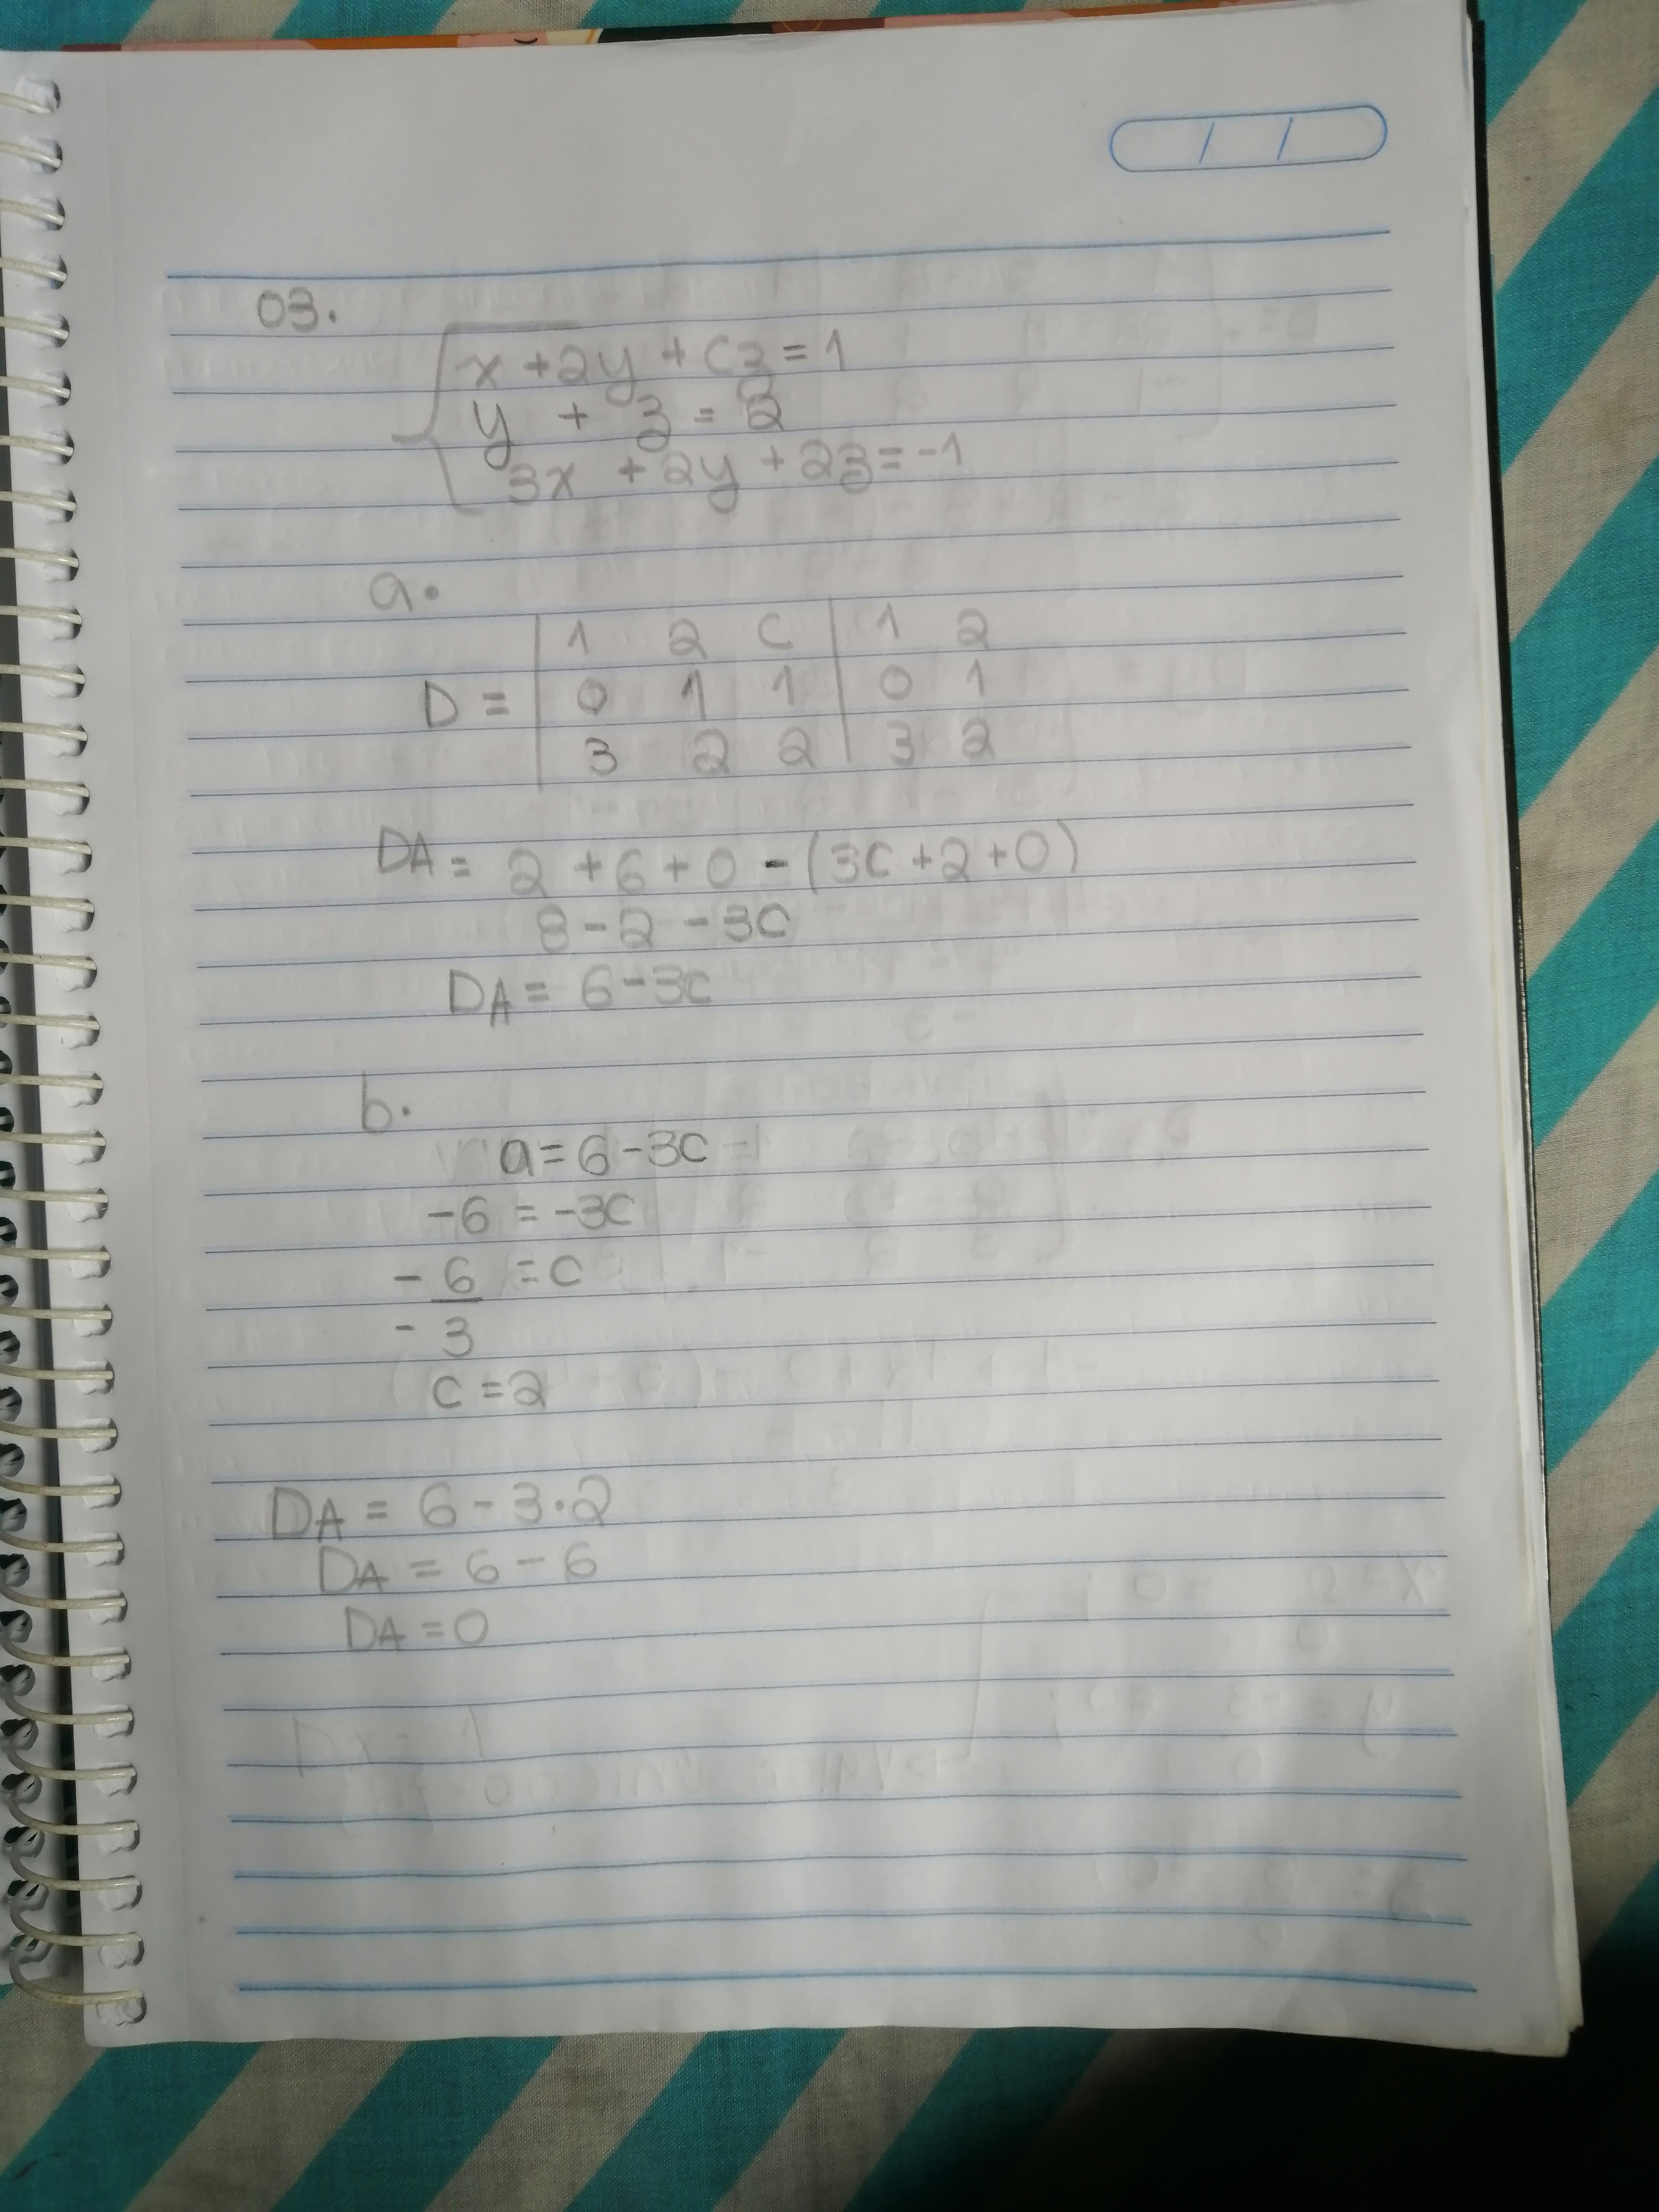 03.
x + 2y + Cz = 1
y + z = 2
3x + 2y + 2z = -1
a.
1 2 C 1 2
D = 0 1 1 0 1
3 2 2 3 2
DA = 2 + 6 + 0 - (3C + 2 + 0)
8 - 2 - 3C
DA = 6 - 3C
b.
a = 6 - 3C
-6 = -3C
- 6 = C
- 3
C = 2
DA = 6 - 3 · 2
DA = 6 - 6
DA = 0